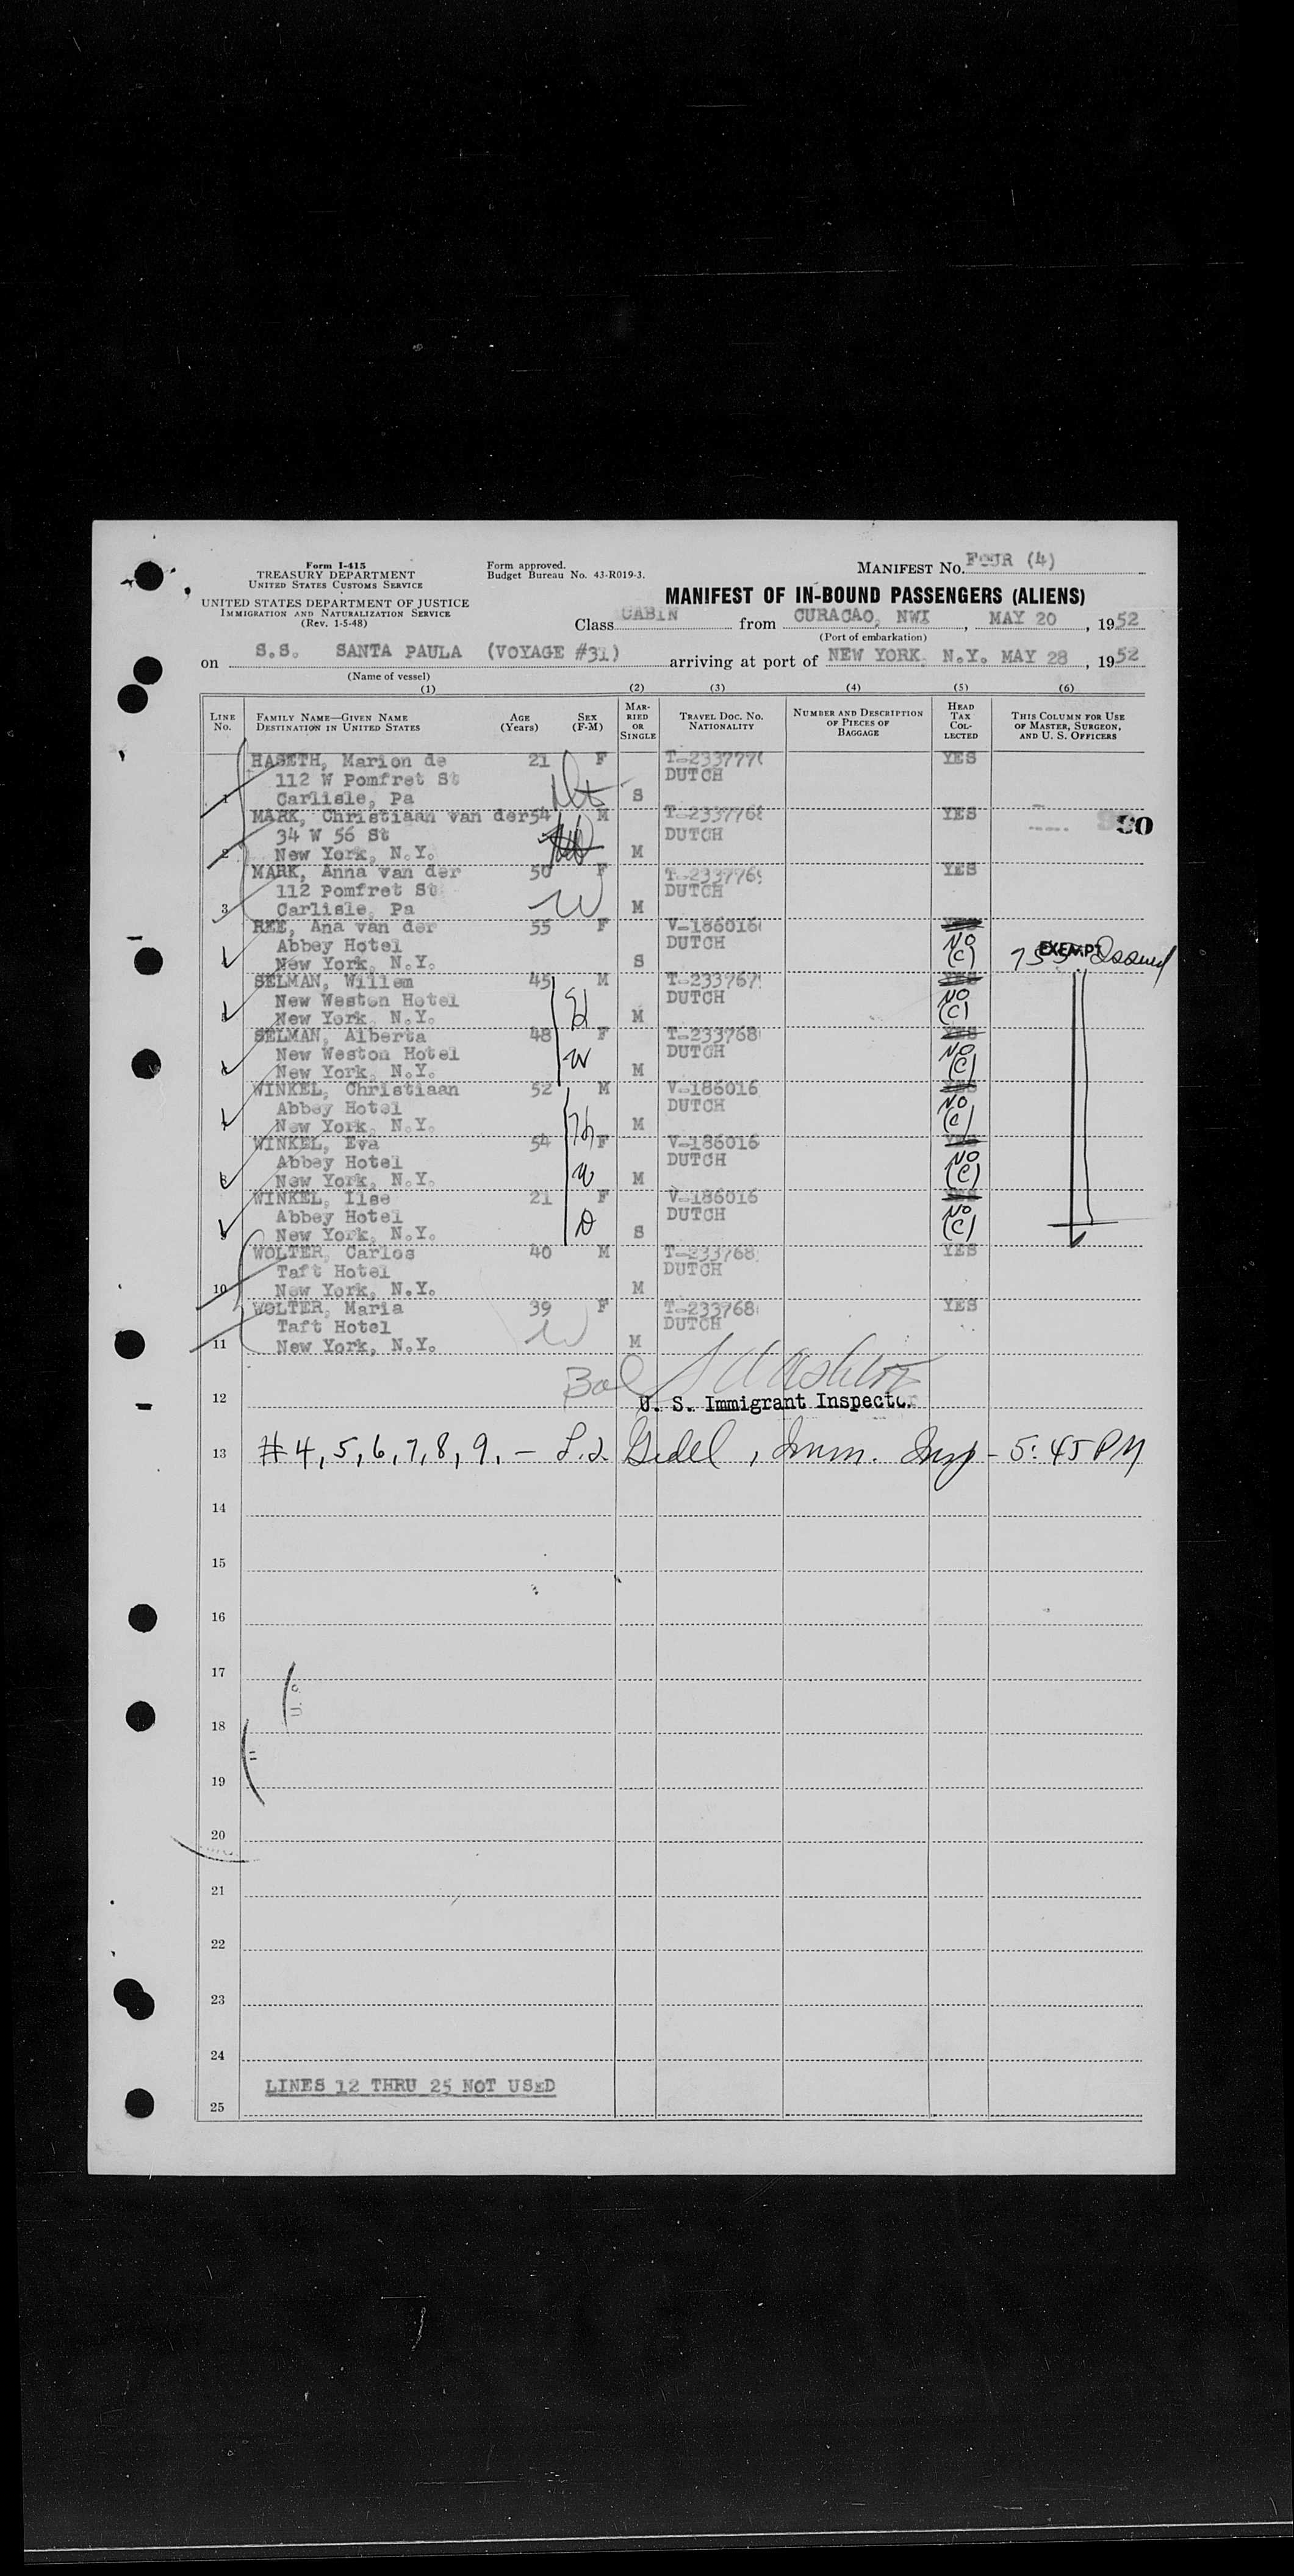 Form I-415
TREASURY DEPARTMENT
UNITED STATES CUSTOMS SERVICE
UNITED STATES DEPARTMENT OF JUSTICE
IMMIGRATION AND NATURALIZATION SERVICE
(Rev. 1-5-48)
Form approved.
Budget Bureau No. 43-R019-3.
MANIFEST NO. FOUR (4)
MANIFEST OF IN-BOUND PASSENGERS (ALIENS)
Class CABIN from CURACAO, NWI, MAY 20, 1952
(Port of embarkation)
on S.S. SANTA PAULA (VOYAGE #31) arriving at port of NEW YORK, N.Y. MAY 28, 1952
(Name of vessel)
(1) (2) (3) (4) (5) (6)
LINE NO. FAMILY NAME—GIVEN NAME DESTINATION IN UNITED STATES AGE (Years) SEX (F-M) MARRIED OR SINGLE TRAVEL DOC. NO. NATIONALITY NUMBER AND DESCRIPTION OF PIECES OF BAGGAGE HEAD TAX COLLECTED THIS COLUMN FOR USE OF MASTER, SURGEON, AND U. S. OFFICERS
HASETH, Marion de 21 F T-233777 YES
112 W Pomfret St DUTCH
1 Carlisle, Pa S
MARK, Christiaan van der 54 M T-233776 YES
34 W 56 St DUTCH
2 New York, N.Y. M
MARK, Anna van der 50 F T-233776 YES
112 Pomfret St DUTCH
3 Carlisle, Pa M
REE, Ana van der 55 F V-186016 YES
Abbey Hotel DUTCH NO EXEMPT Issued
New York, N.Y. S (C)
SELMAN, Willem 45 M T-233767 YES
New Weston Hotel DUTCH NO
New York, N.Y. M (C)
SELMAN, Alberta 48 F T-233768 YES
New Weston Hotel DUTCH NO
New York, N.Y. M (C)
WINKEL, Christiaan 52 M V-186016 YES
Abbey Hotel DUTCH NO
New York, N.Y. M (C)
WINKEL, Eva 54 F V-186016 YES
Abbey Hotel DUTCH NO
New York, N.Y. M (C)
WINKEL, Ilse 21 F V-186016 YES
Abbey Hotel DUTCH NO
New York, N.Y. S (C)
WOLTER, Carlos 40 M T-233768 YES
Taft Hotel DUTCH
10 New York, N.Y. M
WOLTER, Maria 39 F T-233768 YES
Taft Hotel DUTCH
11 New York, N.Y. M
12 U. S. Immigrant Inspector
13 #4, 5, 6, 7, 8, 9. — Imm. Insp - 5:45 PM
14
15
16
17
18
19
20
21
22
23
24
LINES 12 THRU 25 NOT USED
25